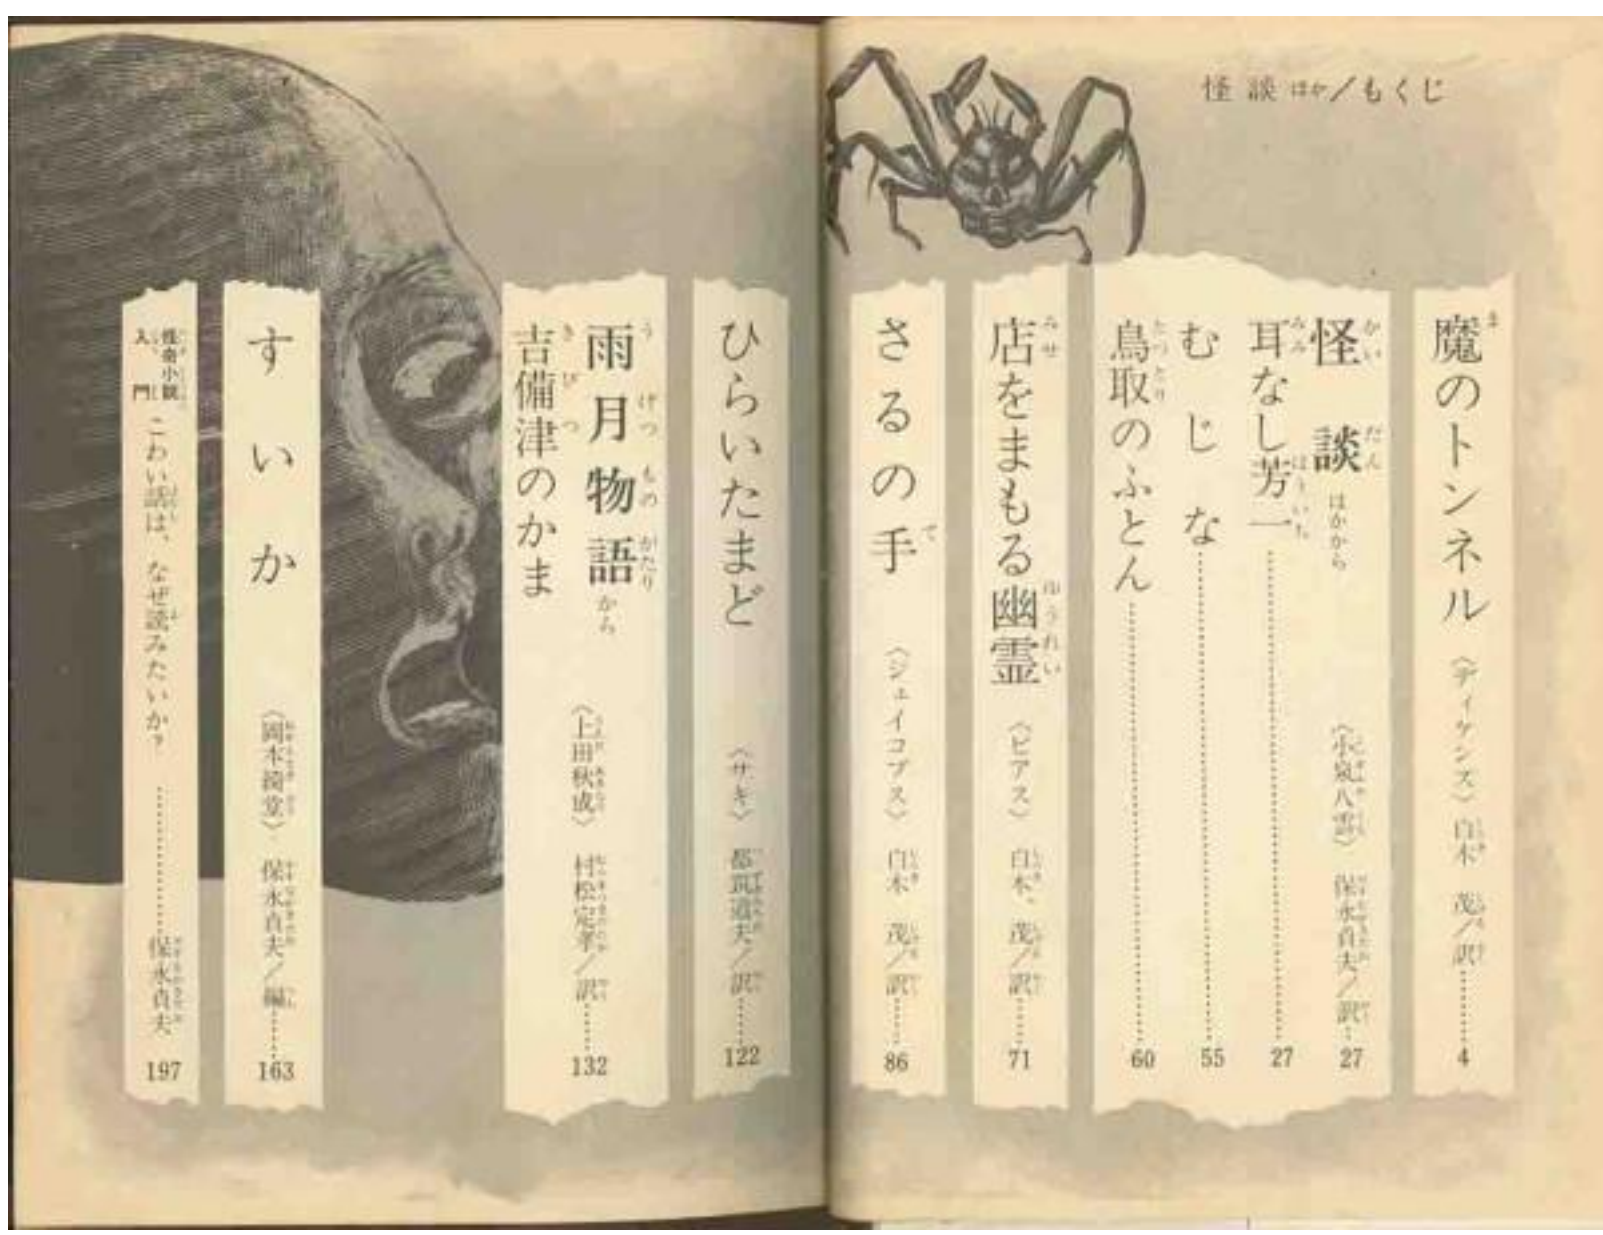 怪談ほか/もくじ
魔のトンネル 〈ディケンズ〉 白木 茂/訳………4
怪談 ほかから 〈小泉八雲〉 保永貞夫/訳…27
耳なし芳一………27
むじな………55
鳥取のふとん………60
店をまもる幽霊 〈ビアス〉 白木 茂/訳………71
さるの手 〈ジェイコブス〉 白木 茂/訳………86
ひらいたまど 〈サキ〉 都筑道夫/訳………122
雨月物語 から
吉備津のかま 〈上田秋成〉 村松定孝/訳………132
すいか 〈岡本綺堂〉 保永貞夫/編………163
怪奇小説入門 こわい話は、なぜ読みたいか? ………保永貞夫 197